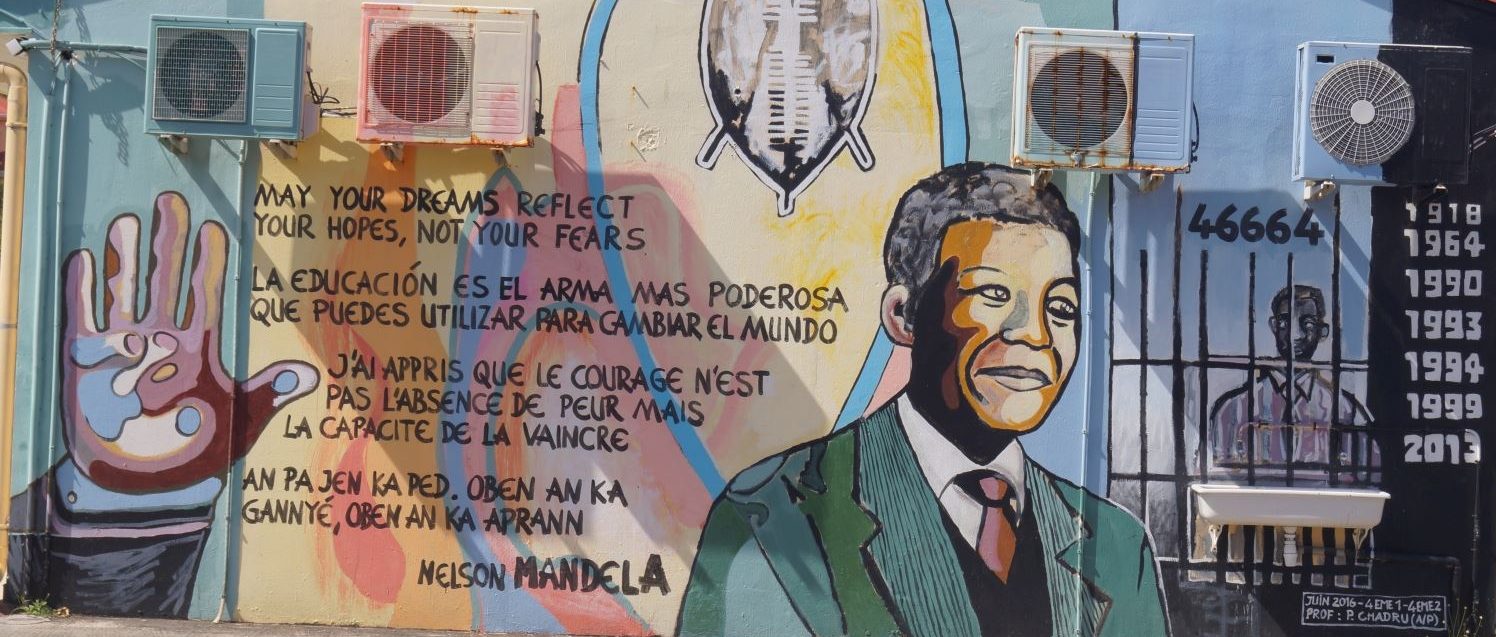 MAY YOUR DREAMS REFLECT
YOUR HOPES, NOT YOUR FEARS
LA EDUCACIÓN ES EL ARMA MAS PODEROSA
QUE PUEDES UTILIZAR PARA CAMBIAR EL MUNDO
J'AI APPRIS QUE LE COURAGE N'EST
PAS L'ABSENCE DE PEUR MAIS
LA CAPACITE DE LA VAINCRE
AN PA JEN KA PED. OBEN AN KA
GANNYÉ, OBEN AN KA APRANN
NELSON MANDELA
46664
1918
1964
1990
1993
1994
1999
2013
JUIN 2016-4EME1-4EME2
PROF: P. CHADRU (N/P)